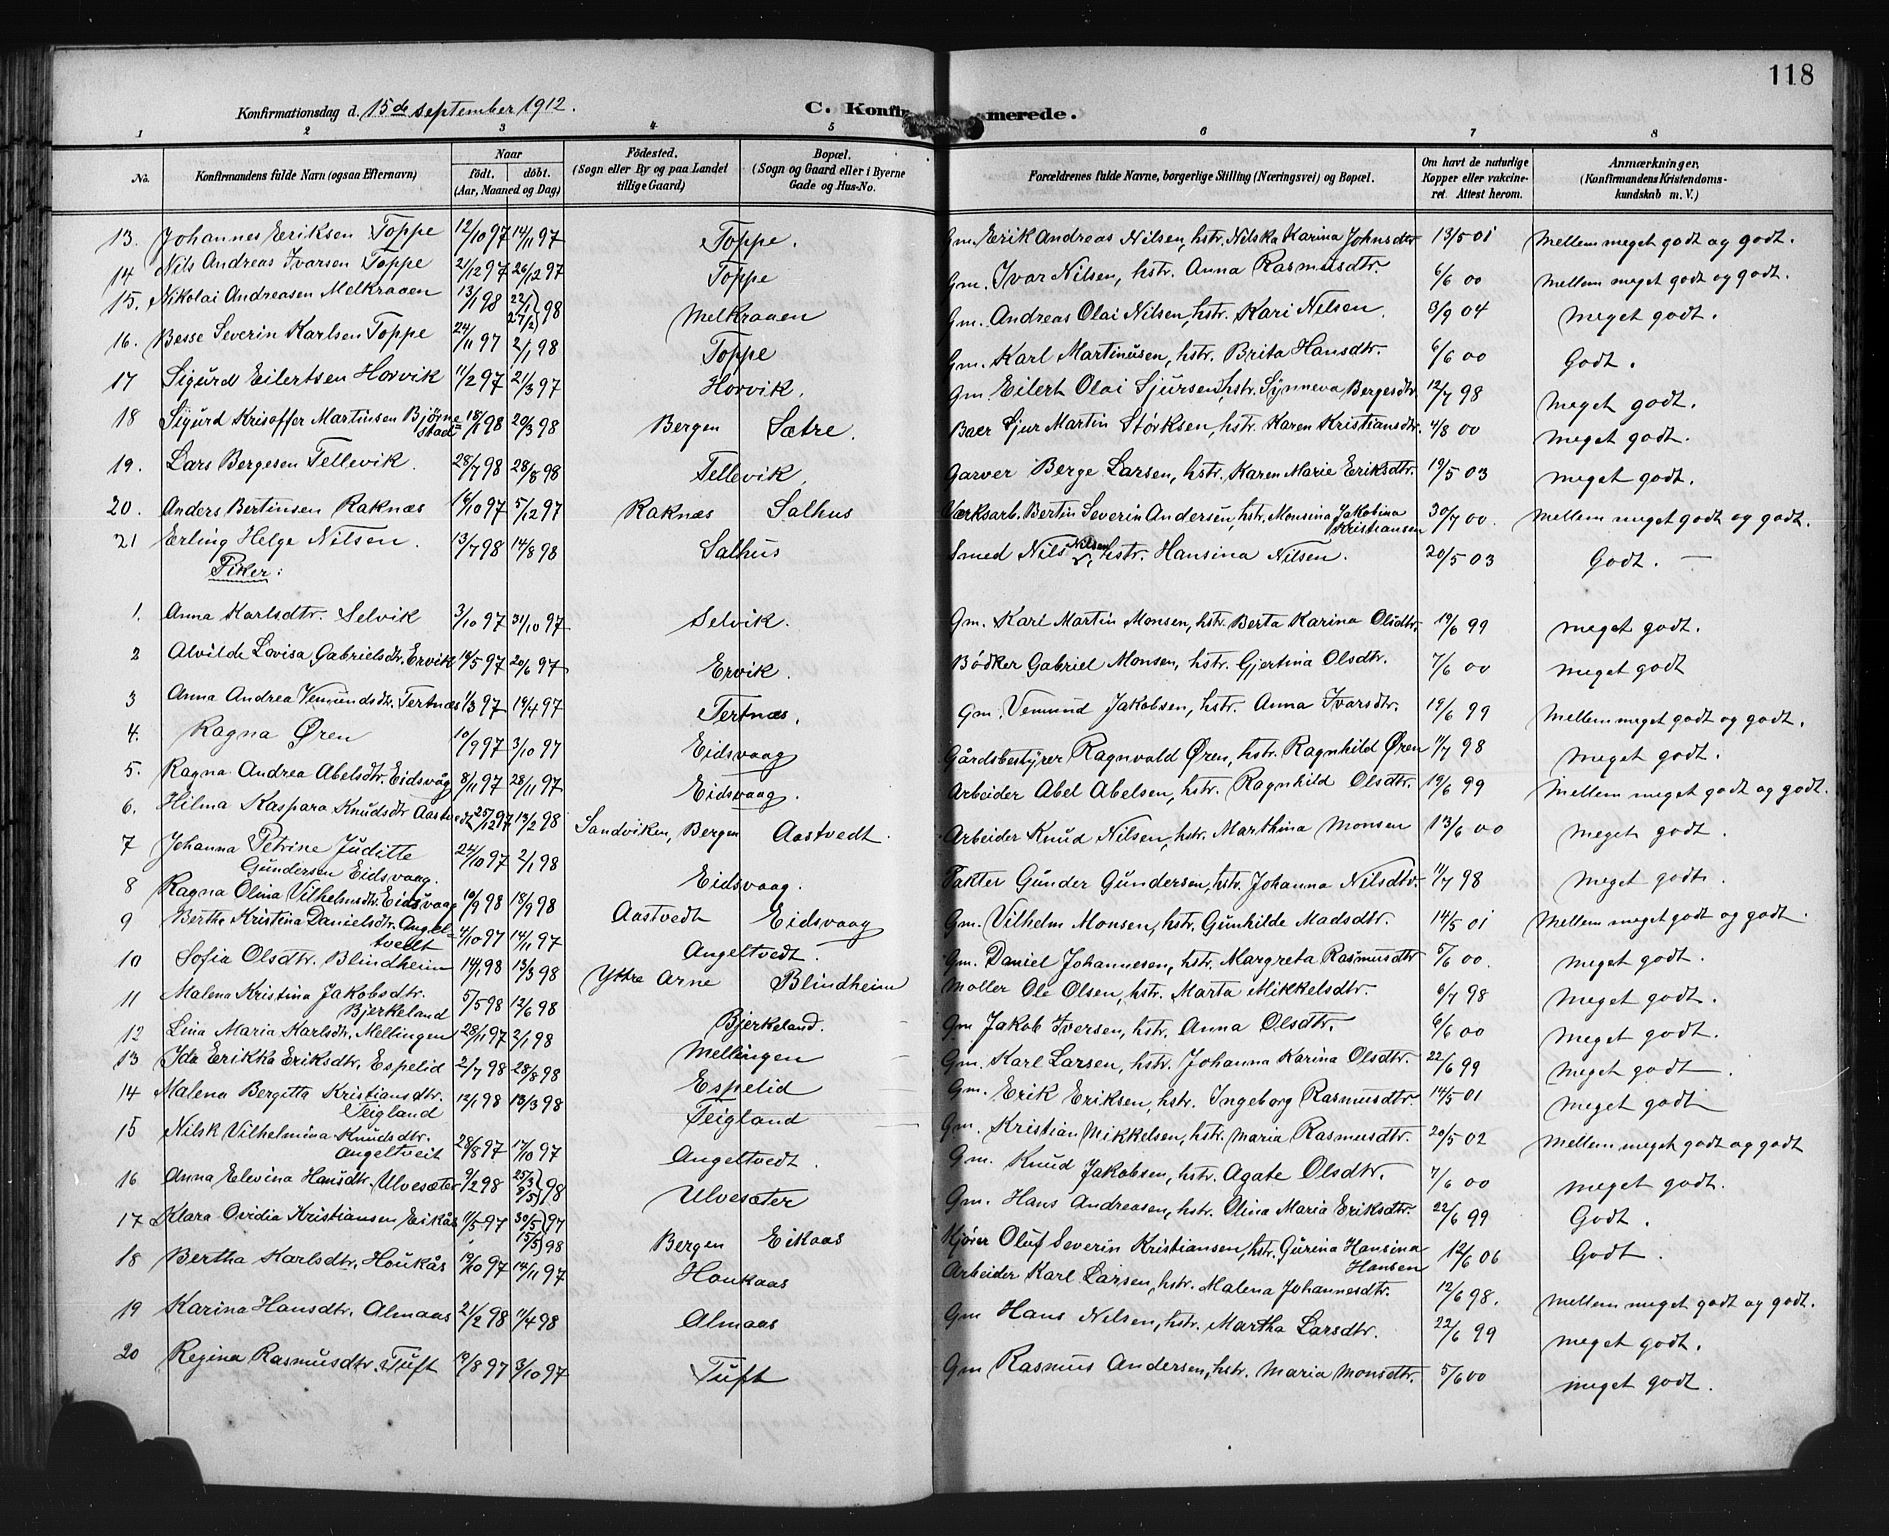 118
Konfirmationsdag d. 15de september 1912.
C. Konfir merede.
1 2 3 4 5 6 7 8
No. Konfirmandens fulde Navn (ogsaa Efternavn) Naar født. døbt. (Aar, Maaned og Dag) Fødested. (Sogn eller By og paa Landet tillige Gaard) Bopæl. (Sogn og Gaard eller i Byerne Gade og Hus-No. Forældrenes fulde Navne, borgerlige Stilling (Næringsvei) og Bopæl. Om havt de naturlige Kopper eller vakcineret. Attest herom. Anmærkninger. (Konfirmandens Kristendomskundskab m. V.)
13. Johannes Eriksen Toppe 12/10 97 14/11 97 Toppe. Gm. Erik Andreas Nilsen, hstr. Nilska Karina Johnsdtr 13/5 01 Mellem meget godt og godt.
14 Nils Andreas Ivarsen Toppe 21/12 97 26/12 97 Toppe Gm. Ivar Nilsen, hstr. Anna Rasmusdtr. 6/6 00 Mellem meget godt og godt.
15. Nikolai Andreasen Melkraaen 13/1 98 22/1 27/2 98 Melkraaen Gm. Andreas Olai Nilsen, hstr. Kari Nilsen. 3/9 04 Meget godt.
16. Besse Severin Karlsen Toppe 24/11 97 2/1 98 Toppe Gm. Karl Martinusen, hstr. Brita Hansdtr. 6/6 00 Godt.
17 Sigurd Eilertsen Horvik 11/2 97 21/3 97 Horvik. Gm Eilert Olai Sjursen, hstr. Synneva Bergesdtr. 12/7 98 Meget godt.
18 Sigurd Krisoffer Martinsen Bjørnestad 18/1 98 20/3 98 Bergen Sætre. Baer Sjur Martin Størksen, hstr. Karen Kristiansdtr. 4/8 00 Meget godt.
19. Lars Bergesen Tellevik. 28/7 98 28/8 98 Tellevik. Garver Berge Larsen, hstr. Karen Marie Eriksdtr. 19/5 03 Meget godt.
20. Anders Bertinsen Raknæs 16/10 97 5/12 97 Raknæs Salhus Værksarb. Bertin Severin Andersen, hstr. Monsina Jakobina Kristiansen 30/7 00. Mellem meget godt og godt.
21 Erling Helge Nilsen. 13/7 98 14/8 98 Salhus Smed Nils Nilsen, hstr. Hansina Nilsen. 20/5 03 Godt. —
Piker:
1. Anna Karlsdtr. Selvik 3/10 97 31/10 97 Selvik. Gm. Karl Martin Monsen, hstr. Berta Karina Olsdtr. 19/6 99 Meget godt.
2 Alvilde Lovisa Gabrielsdtr. Ervik 16/5 97 20/6 97 Ervik. Bødker Gabriel Monsen, hstr. Gjertina Olsdtr. 7/6 00 Meget godt
3 Anna Andrea Vemundsdtr. Tertnæs 1/3 97 19/4 97 Tertnæs. Gm. Vemund Jakobsen, hstr. Anna Ivarsdtr. 19/6 99 Mellem meget godt og godt.
4. Ragna Øren 10/9 97 3/10 97 Eidsvaag Gårdsbestyrer Ragnvald Øren, hstr. Ragnhild Øren 11/7 98 Meget godt.
5. Ragna Andrea Abelsdtr. Eidsvåg 8/11 97 28/11 97 Eidsvaag. Arbeider Abel Abelsen, hstr. Ragnhild Olsdtr. 19/6 99 Mellem meget godt og godt.
6. Hilma Kaspara Knudsdtr Aastvedt 25/12 97 13/2 98 Sandviken, Bergen Aastvedt. Arbeider Knud Nilsen, hstr. Marthina Monsen 13/6 00 Meget godt.
7 Johanna Petrine Juditte Gundersen Eidsvaag. 24/10 97 2/1 98 Eidsvaag. Faktor Gunder Gundersen, hstr. Johanna Nilsdtr. 11/7 98 Meget godt.
8 Ragna Olina Vilhelmsdtr. Eidsvaag 10/9 98 18/9 98 Aastvedt Eidsvaag Gm. Vilhelm Monsen, hstr. Gunhilde Madsdtr. 14/5 01 Mellem meget godt og godt.
9 Berthe Kristina Danielsdtr. Angeltvedt 4/10 97 14/11 97 Angeltvedt. Gm. Daniel Johannesen, hstr. Margreta Rasmusdtr 5/6 00. Meget godt.
10 Sofia Olsdtr. Blindheim 14/1 98 13/3 98 Ytre Arne Blindheim Møller Ole Olsen, hstr. Marta Mikkelsdtr. 6/7 98 Meget godt.
11 Malena Kristina Jakobsdtr. Bjerkeland 5/5 98 12/6 98 Bjerkeland. Gm Jakob Iversen, hstr. Anna Olsdtr. 6/6 00 Meget godt.
12 Lina Maria Karlsdtr. Mellingen 28/11 97 2/1 98 Mellingen Gm. Karl Larsen, hstr. Johanna Karina Olsdtr. 22/6 99 Meget godt.
13 Ida Erikka Eriksdtr. Espelid 2/7 98 28/8 98 Espelid Gm. Erik Eriksen, hstr. Ingeborg Rasmusdtr. 14/5 01 Meget godt
14 Malena Bergitta Kristiansdtr. Teigland 12/1 98 13/3 98 Teigland Gm. Kristian Mikkelsen, hstr. Maria Rasmusdtr. 20/5 02 Mellem meget godt og godt
15 Nilsk Vilhelmina Knudsdtr. Angeltveit 28/8 97 17/10 97 Angeltvedt. Gm. Knud Jakobsen, hstr. Agate Olsdtr. 7/6 00 Meget godt.
16 Anna Elevina Hansdtr. Ulvesæter 9/2 98 25/3 9/5 98 Ulvesæter Gm. Hans Andreasen, hstr. Olina Maria Eriksdtr. 22/6 99 Godt.
17 Klara Ovidia Kristiansen Eikås 11/5 97 30/5 97 15/5 98 Bergen Eikaas Kjører Oluf Severin Kristiansen, hstr. Gurina Hansina Hansen 12/6 06 Godt.
18 Bertha Karlsdtr. Houkås 19/10 97 14/11 97 Houkaas Arbeider Karl Larsen, hstr. Malena Johannesdtr. 12/6 98. Mellem meget godt og godt.
19 Karina Hansdtr. Almaas 21/2 98 11/4 98 Almaas Gm Hans Nilsen, hstr. Martha Larsdtr. 22/6 99 Meget godt.
20 Regina Rasmusdtr. Tuft 19/8 97 3/10 97 Tuft Gm Rasmus Andersen, hstr. Maria Monsdtr. 5/6 00 Meget godt.